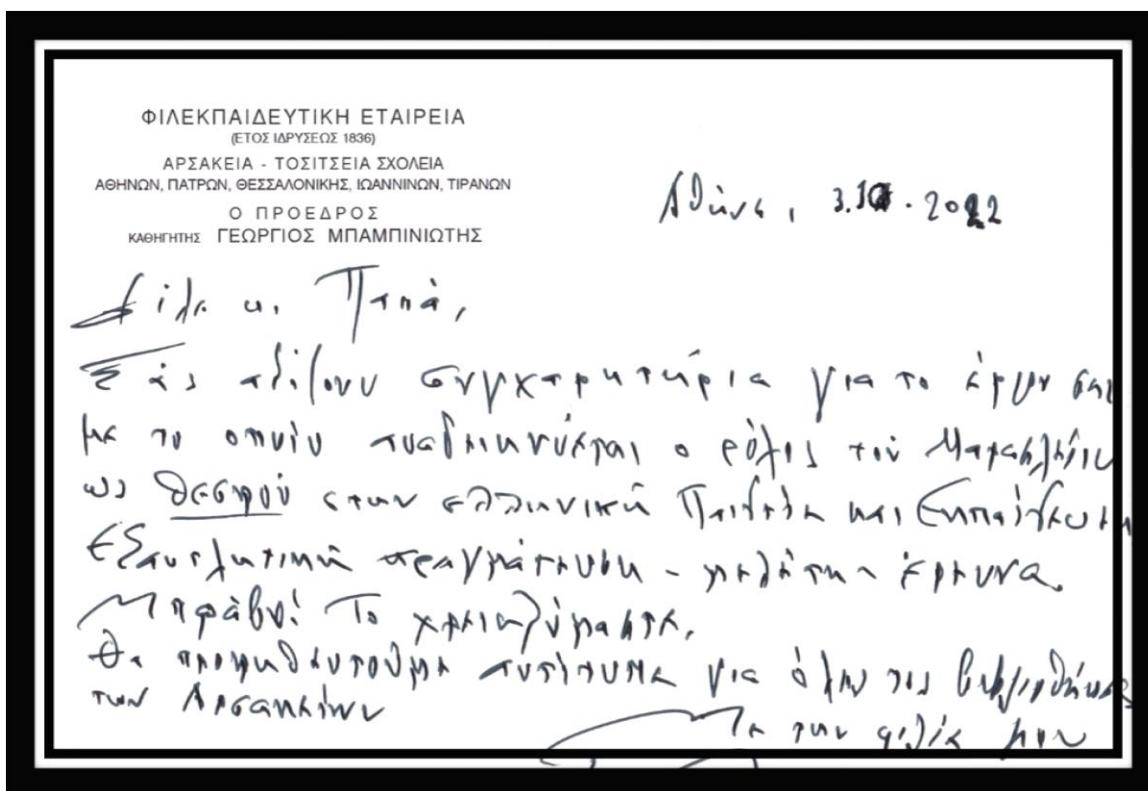 ΦΙΛΕΚΠΑΙΔΕΥΤΙΚΗ ΕΤΑΙΡΕΙΑ
(ΕΤΟΣ ΙΔΡΥΣΕΩΣ 1836)
ΑΡΣΑΚΕΙΑ - ΤΟΣΙΤΣΕΙΑ ΣΧΟΛΕΙΑ
ΑΘΗΝΩΝ, ΠΑΤΡΩΝ, ΘΕΣΣΑΛΟΝΙΚΗΣ, ΙΩΑΝΝΙΝΩΝ, ΤΙΡΑΝΩΝ
Ο ΠΡΟΕΔΡΟΣ
ΚΑΘΗΓΗΤΗΣ ΓΕΩΡΓΙΟΣ ΜΠΑΜΠΙΝΙΩΤΗΣ
Αθήνα, 2022
Φίλε κ. Παπά,
Σάς αξίζουν συγχαρητήρια για το έργον σας
με το οποίο αναδεικνύεται ο ρόλος τού Μαρασλείου
ως θεσμού στην ελληνική Παιδεία και Εκπαίδευση
Εξαντλητική πραγμάτευση - μελέτη - έρευνα.
Μπράβο! Το χρειαζόμαστε.
Θα προμηθευτούμε αντίτυπα για όλες τις βιβλιοθήκες
των Αρσακείων
Με την φιλία μου